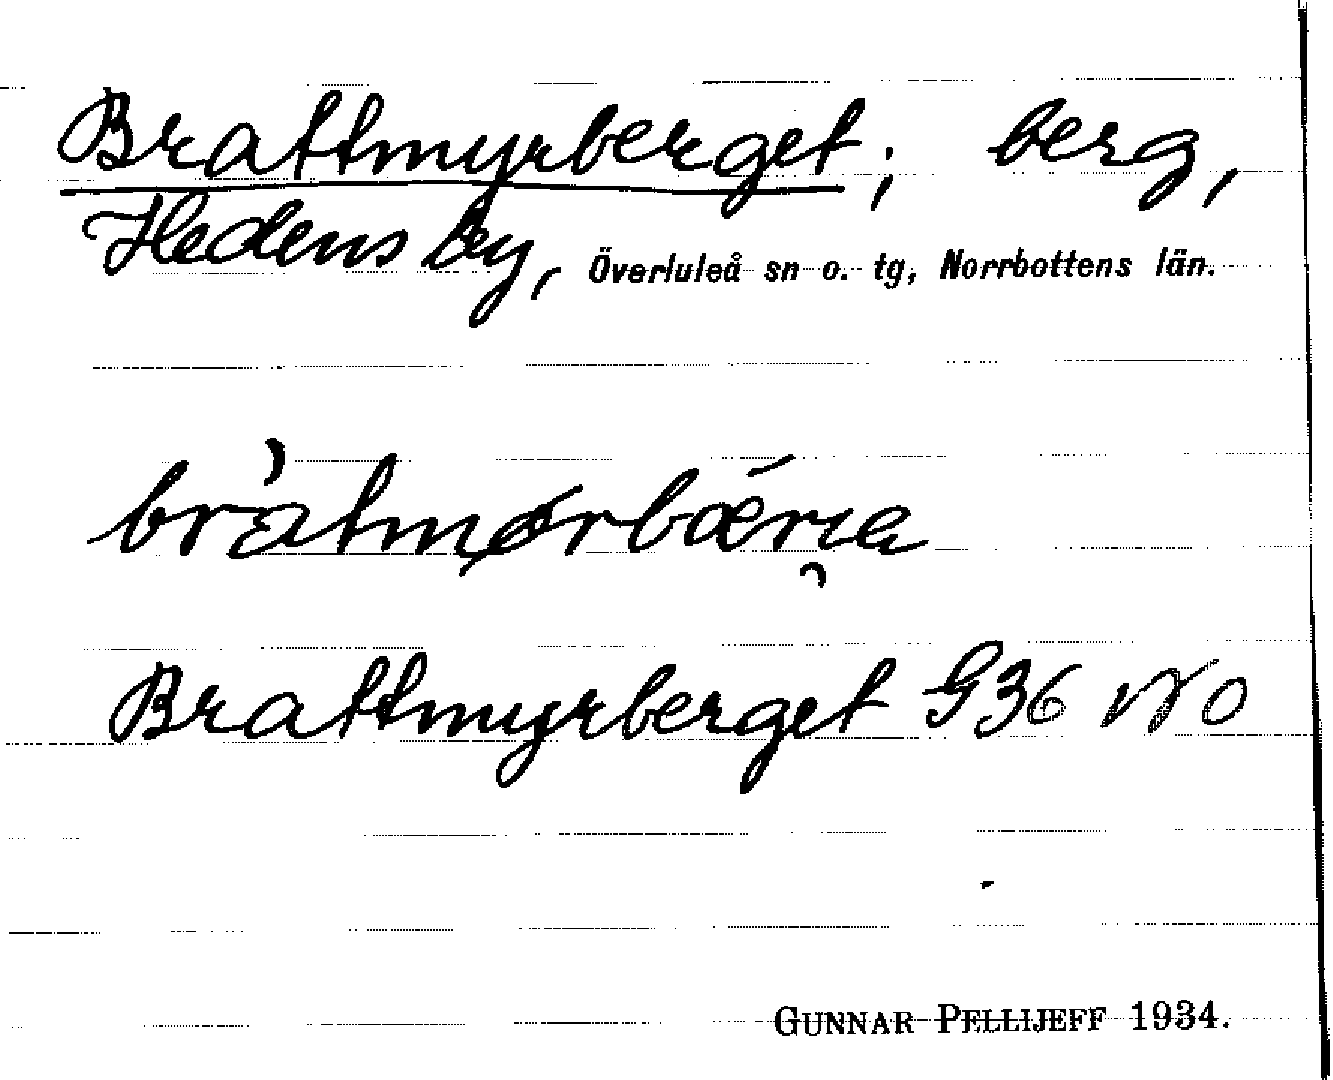 Brattmyrberget; berg,
Hedens by, Överluleå sn o. tg, Norrbottens län.
Brattmyrberget G36 NO
GUNNAR PELLIJEFF 1934.